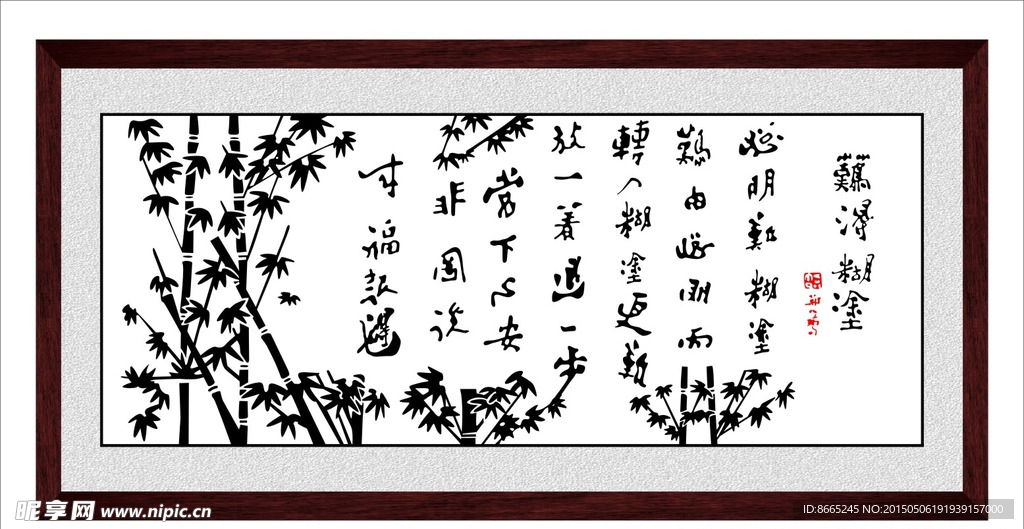 難得糊塗
聰明難糊塗
難由聰明而
轉入糊塗更難
放一着退一步
當下心安
非圖後
來福報
昵享网 www.nipic.cn
ID:8665245 NO:20150506191939157000